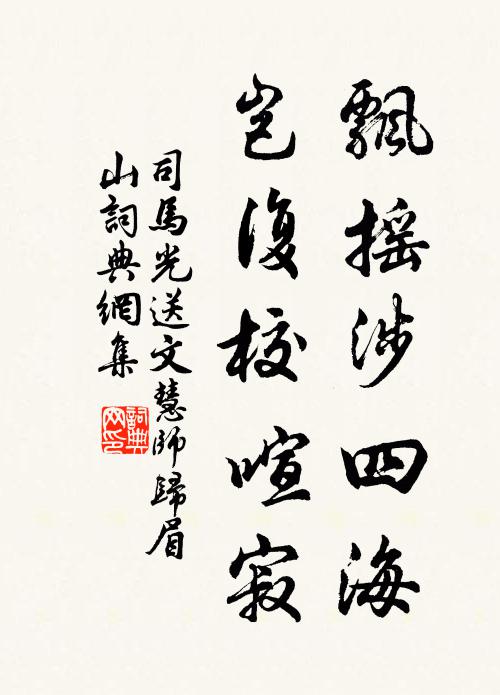 飄摇涉四海
豈復校喧寂
司馬光送文慧師歸眉
山詞典網集
詞典网印